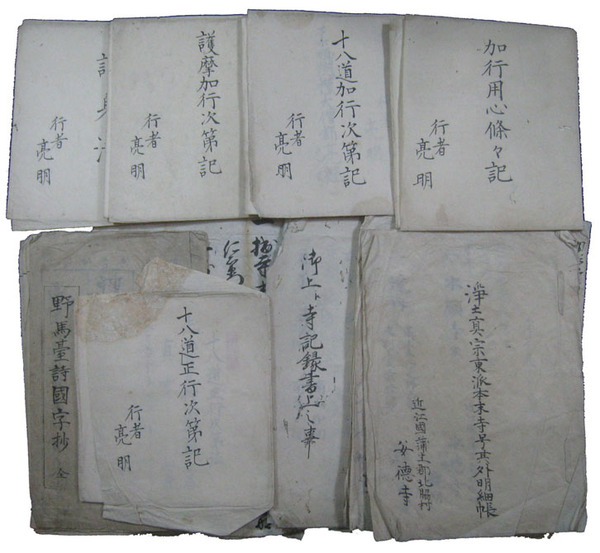 加行用心條々記
行者
亮明
十八道加行次第記
行者
亮明
護摩加行次第記
行者
亮明
行者
亮明
淨土真宗東派本末寺号其外明細帳
近江國蒲生郡北脇村
安德寺
御上ゟ寺記録書上之事
十八道正行次第記
行者
亮明
野馬臺詩國字抄 全